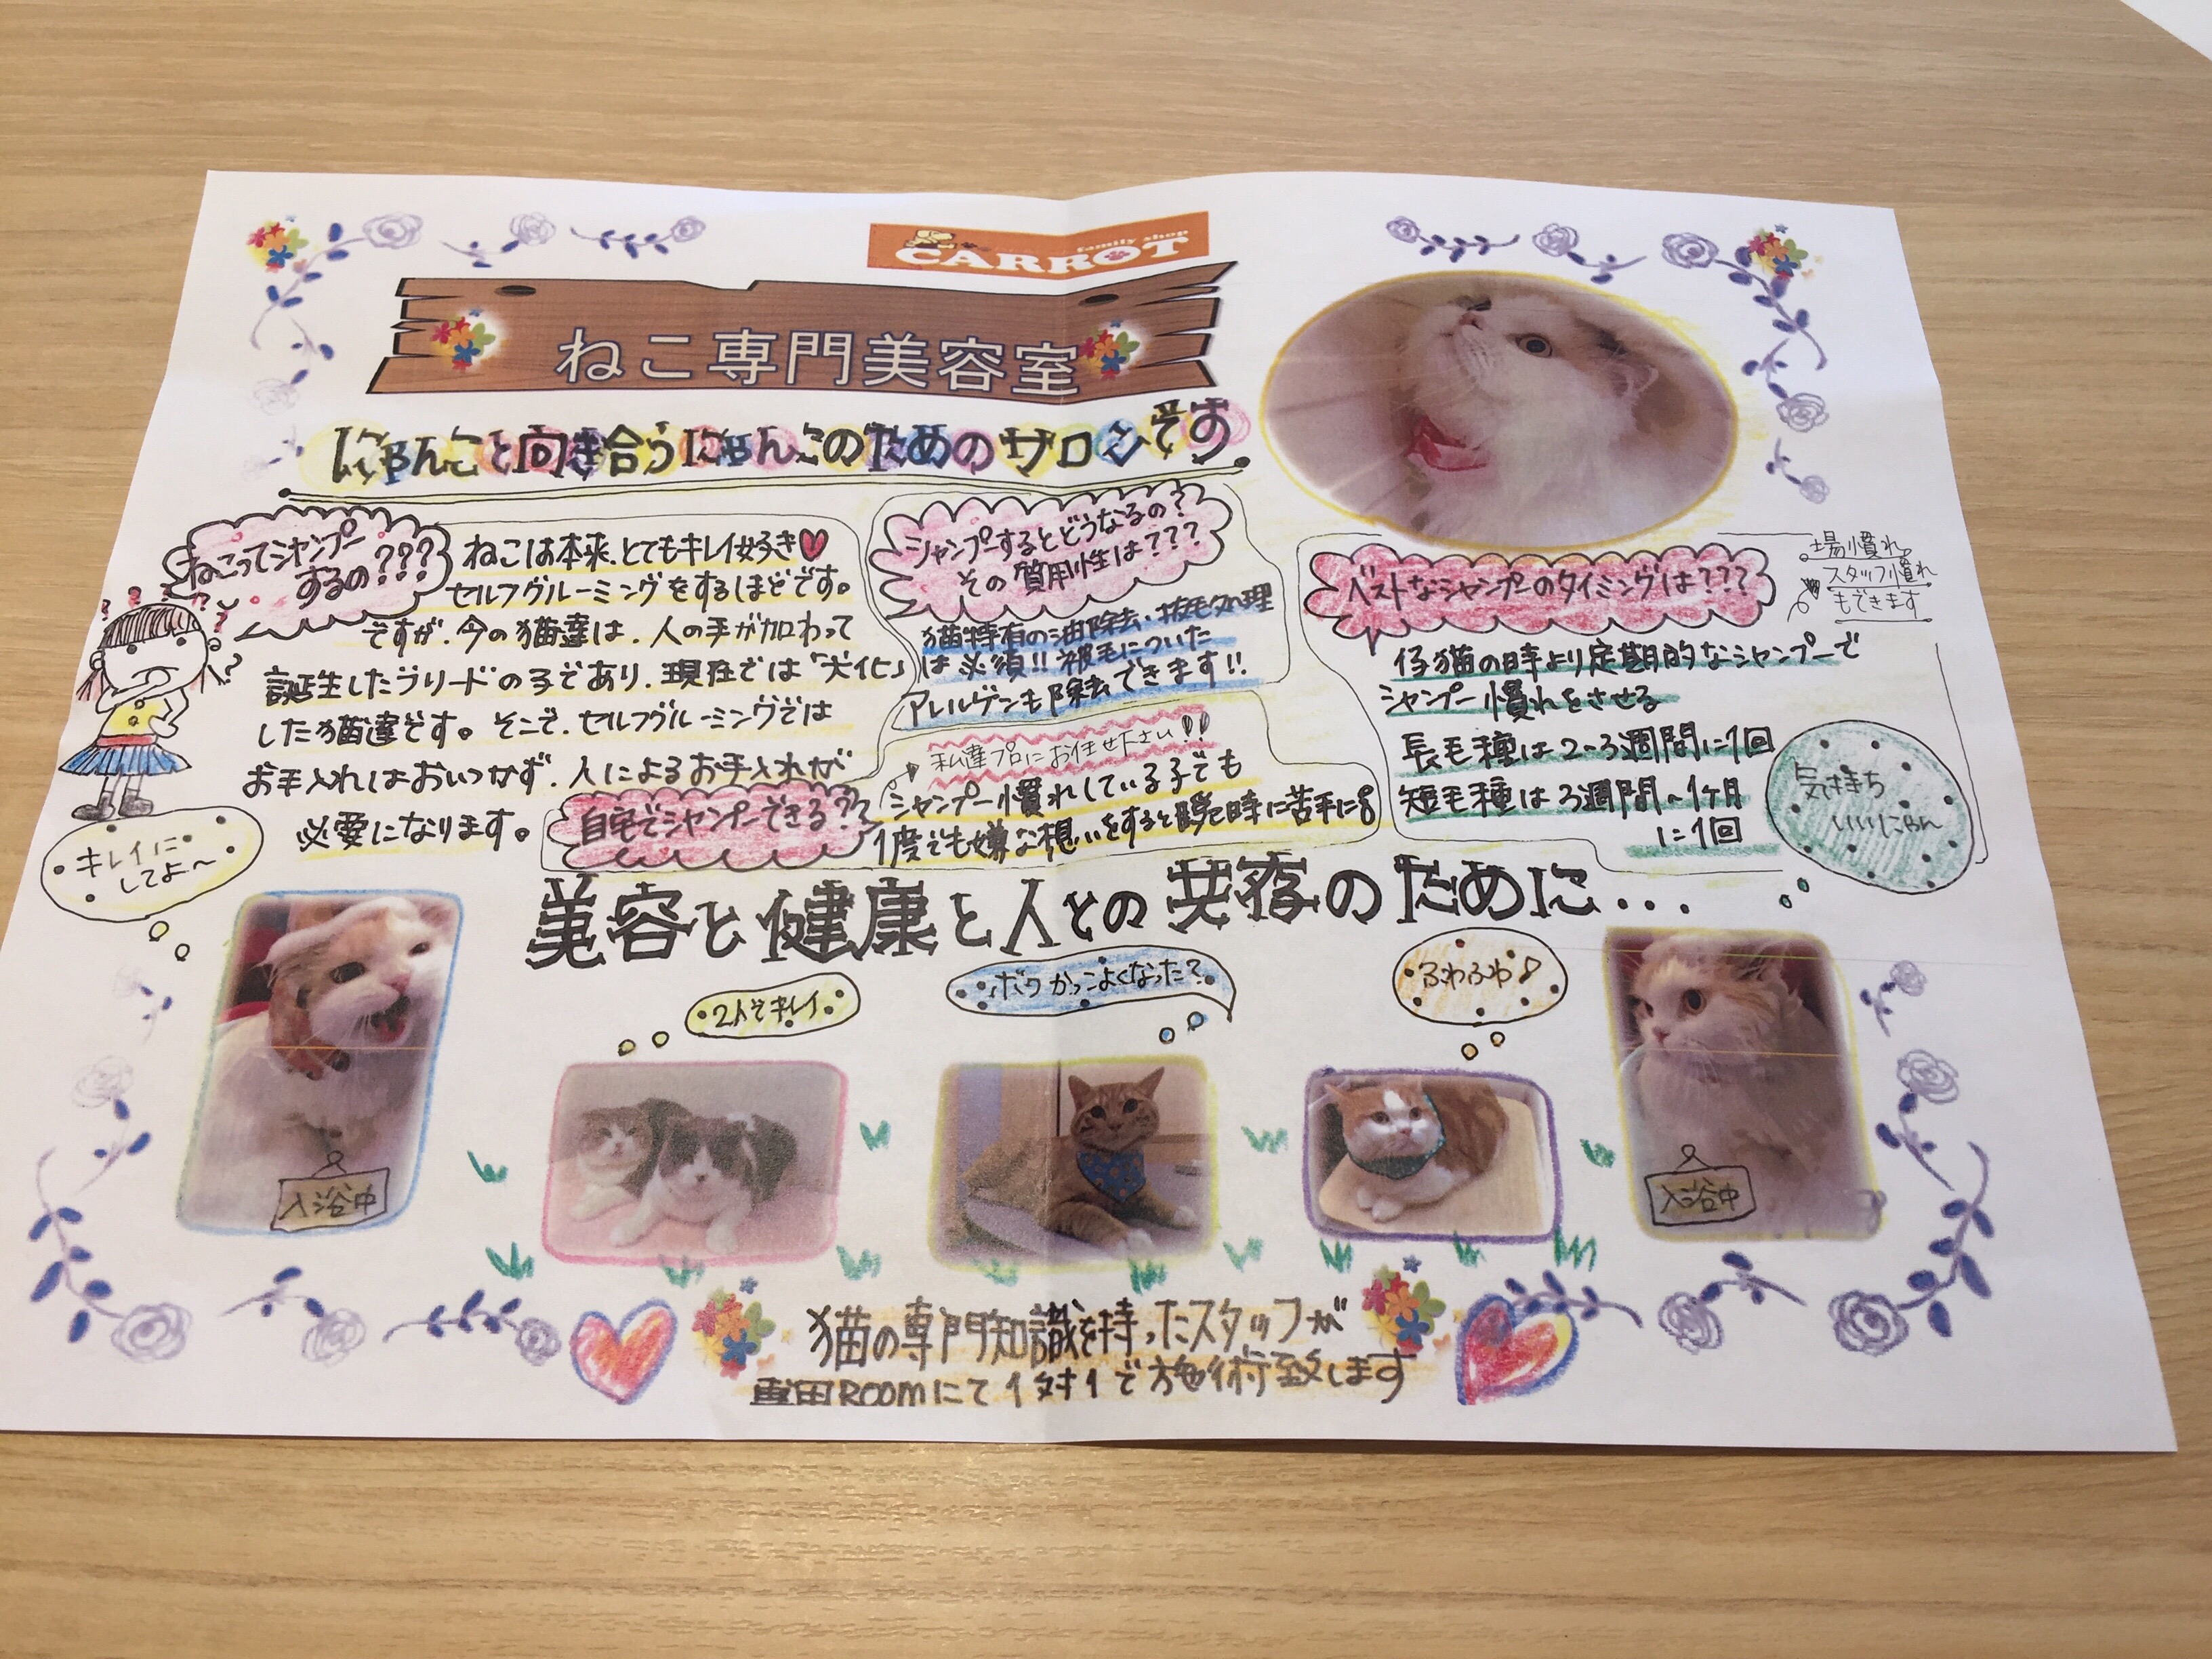 family shop
CARROT
ねこ専門美容室
にゃんこと向き合うにゃんこのためのサロンです
ねこってシャンプー
するの???
ねこは本来、とてもキレイ好き
セルフグルーミングをするほどです。
ですが、今の猫達は、人の手が加わって
誕生したブリードの子であり、現在では「犬化」
した猫達です。そこで、セルフグルーミングでは
お手入れはおいつかず、人によるお手入れが
必要になります。
シャンプーするとどうなるの?
その 費用性は???
猫特有の油除去・抜毛処理
は必須!! 被毛についた
アレルゲンも除去できます!!
自宅でシャンプーできる??
私達プロにお任せ下さい!!
シャンプー慣れしている子でも
1度でも嫌な想いをすると瞬時に苦手に
ベストなシャンプーのタイミングは???
場慣れ
スタッフ慣れ
もできます
仔猫の時より定期的なシャンプーで
シャンプー慣れをさせる
長毛種は2~3週間に1回
短毛種は3週間~1ヶ月
に1回
気持ち
いいにゃん
キレイに
してよ~
美容と健康と人との共存のために...
2人でキレイ
ボクかっこよくなった?
ふわふわ♪
入浴中
入浴中
猫の専門知識を持ったスタッフが
専用ROOMにて1対1で施術致します